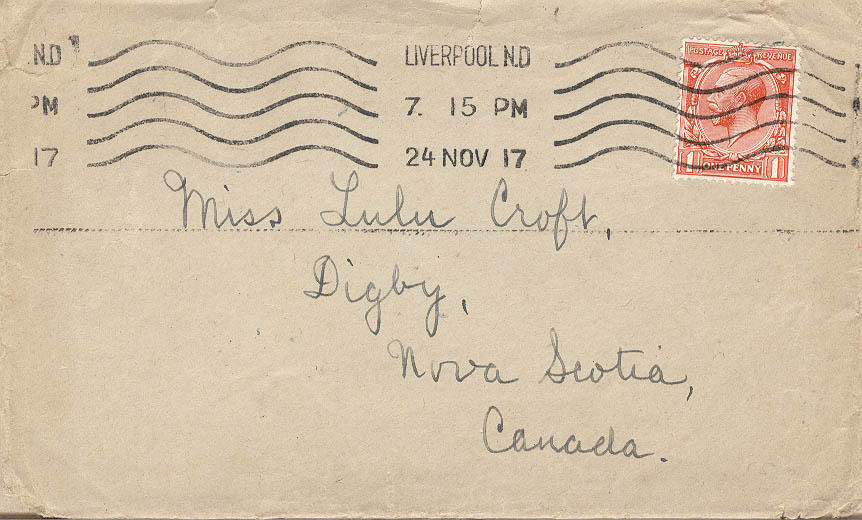 N.D LIVERPOOL N.D
PM 7. 15 PM
17 24 NOV 17
POSTAGE REVENUE
1 ONE PENNY 1
Miss Lulu Croft,
Digby,
Nova Scotia,
Canada.